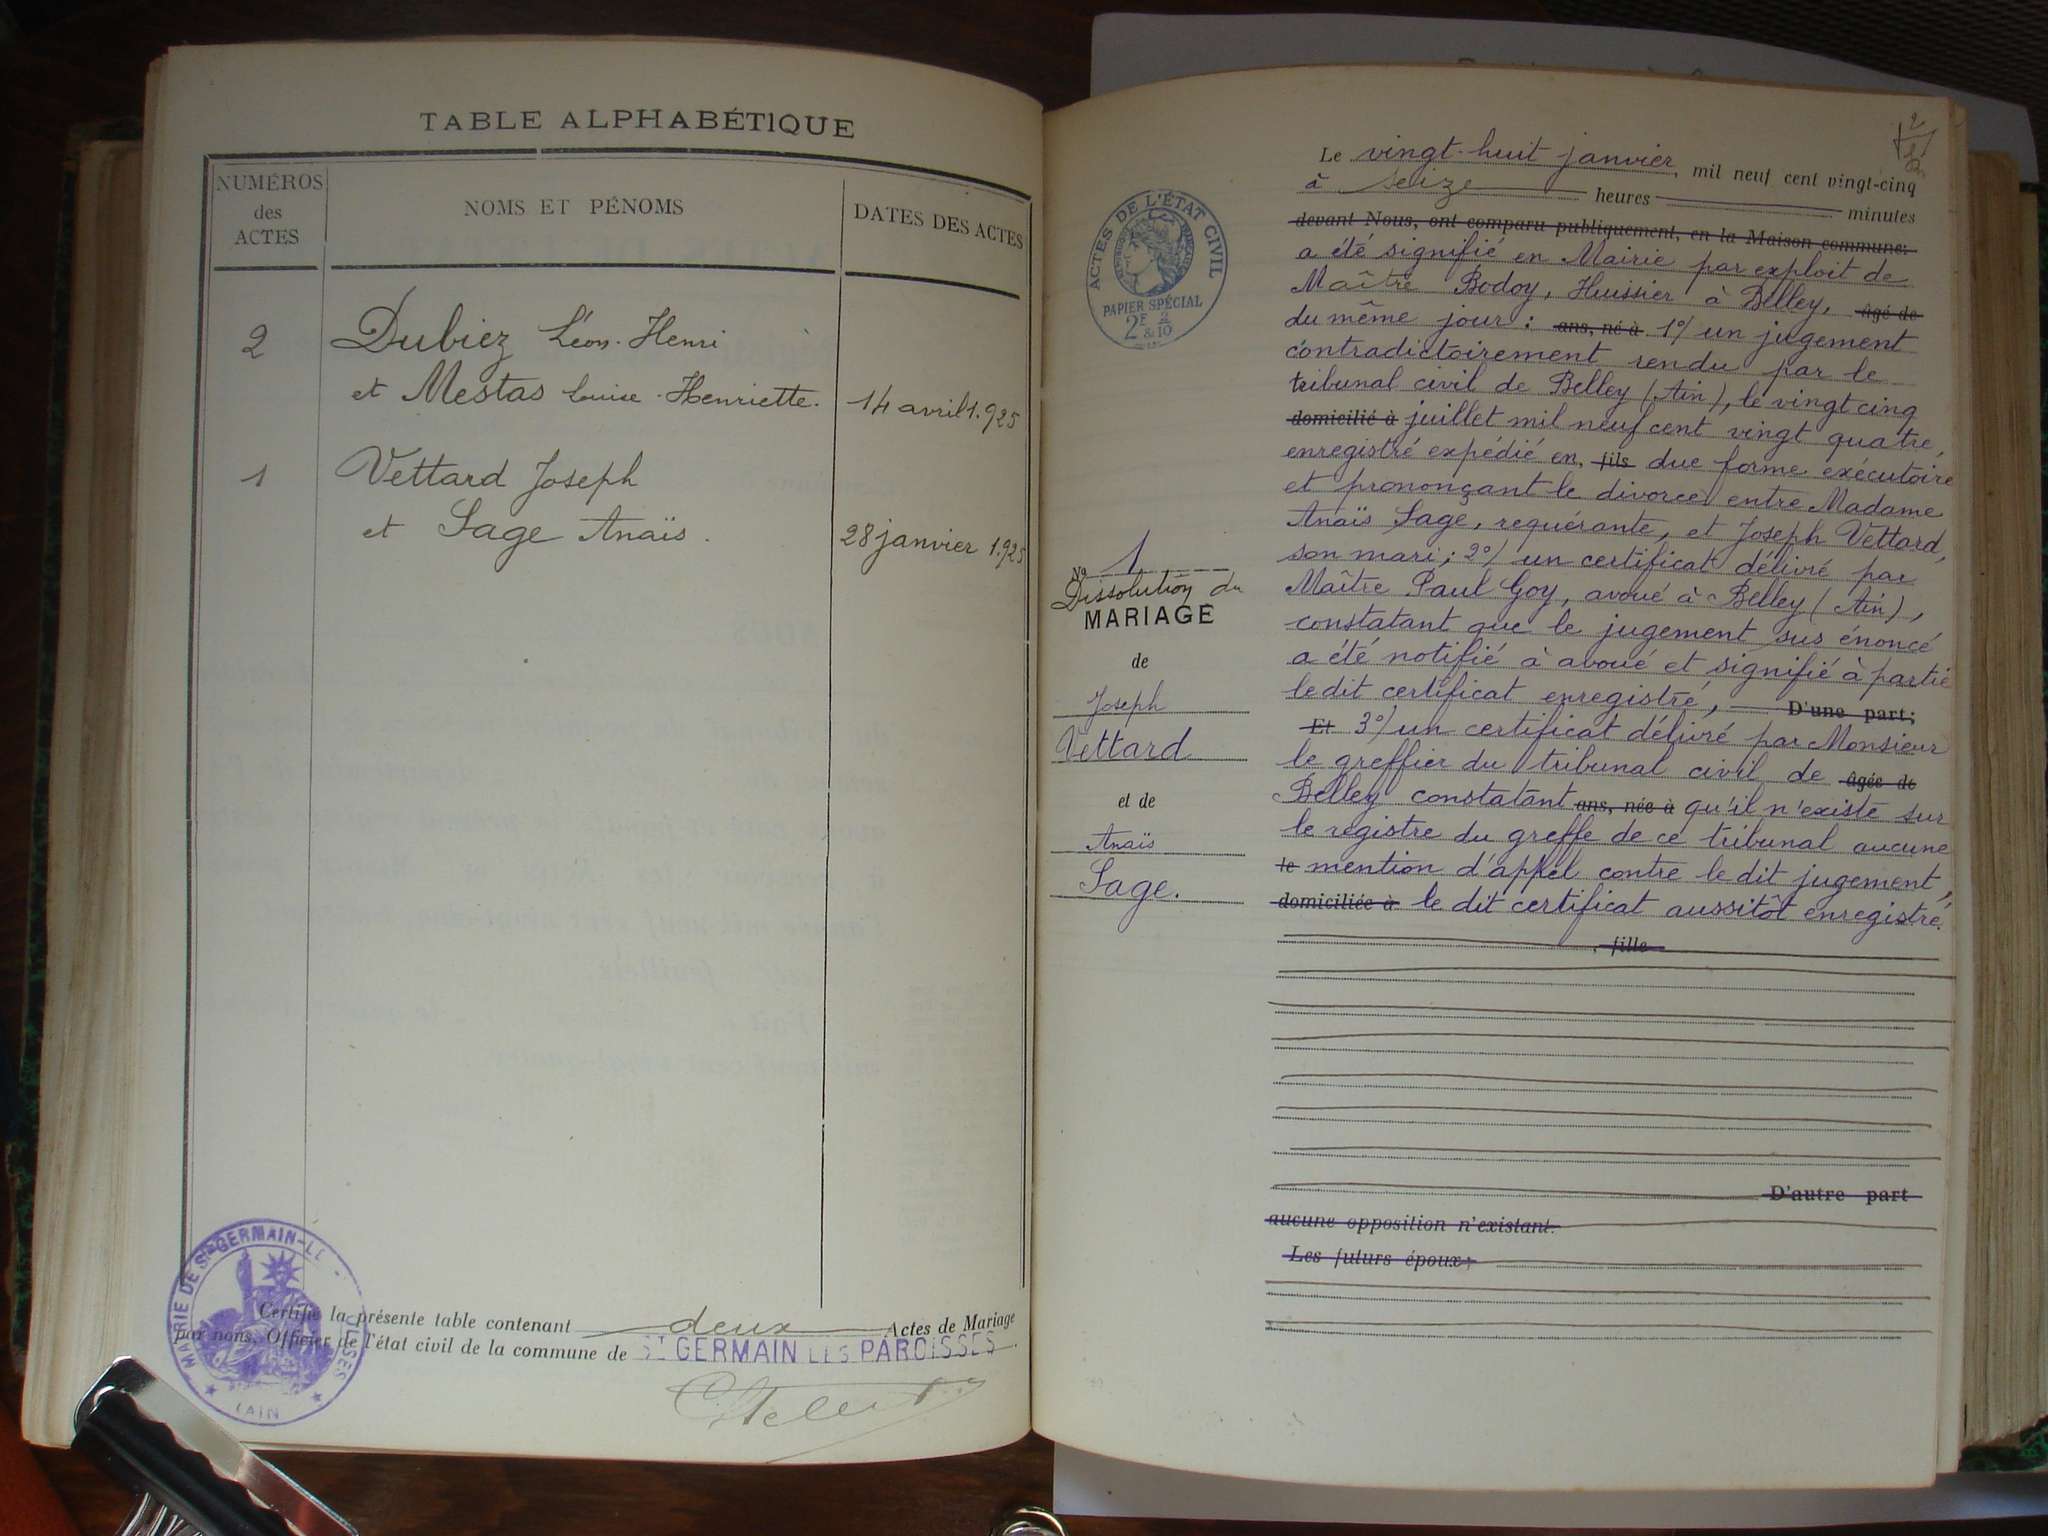 TABLE ALPHABÉTIQUE
NUMÉROS
des
ACTES
NOMS ET PÉNOMS
DATES DES ACTES
2
Dubiez Léon-Henri
et Mestas Louise-Henriette.
14 avril 1.925
1
Vettard Joseph
et Sage Anaïs.
28 janvier 1.925
Certifie la présente table contenant deux Actes de Mariage
par nous, Officier de l'état civil de la commune de ST GERMAIN LES PAROISSES.
MAIRIE DE ST GERMAIN-LE
(AIN
ACTES DE L'ÉTAT CIVIL
PAPIER SPÉCIAL
2F &
2/10
No 1
Dissolution du
MARIAGE
de
Joseph
Vettard
et de
Anaïs
Sage.
2
Le vingt-huit janvier, mil neuf cent vingt-cinq
à seize heures minutes
devant Nous, ont comparu publiquement, en la Maison commune:
a été signifié en Mairie par exploit de
Maître Bodoy, Huissier à Belley, âgé de
du même jour: ans, né à 1°/ un jugement
contradictoirement rendu par le
tribunal civil de Belley (Ain), le vingt cinq
domicilié à juillet mil neuf cent vingt quatre,
enregistré expédié en, fils due forme exécutoire
et prononçant le divorce entre Madame
Anaïs Sage, requérante, et Joseph Vettard,
son mari; 2°/ un certificat délivré par
Maître Paul Goy, avoué à Belley (Ain),
constatant que le jugement sus énoncé
a été notifié à avoué et signifié à partie
le dit certificat enregistré, D'une part;
Et 3°/ un certificat délivré par Monsieur
le greffier du tribunal civil de âgée de
Belley constatant ans, née à qu'il n'existe sur
le registre du greffe de ce tribunal aucune
le mention d'appel contre le dit jugement,
domiciliée à le dit certificat aussitôt enregistré.
, fille
D'autre part
aucune opposition n'existant.
Les futurs époux;